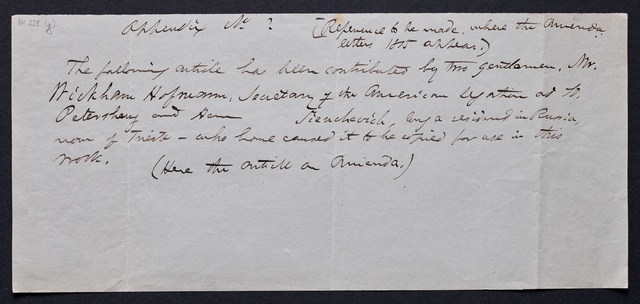 Appendix No ? (Reference to be made, where the Amenda
letters 1815 appear.)
The following article has been contributed by two gentlemen, Mr.
Wickham Hofmann, Secretary of the American Legation at St.
Petersburg and Herr long a resident in Russia
now of Trieste – who have caused it to be copied for use in this
work. (Here the article on Amenda.)